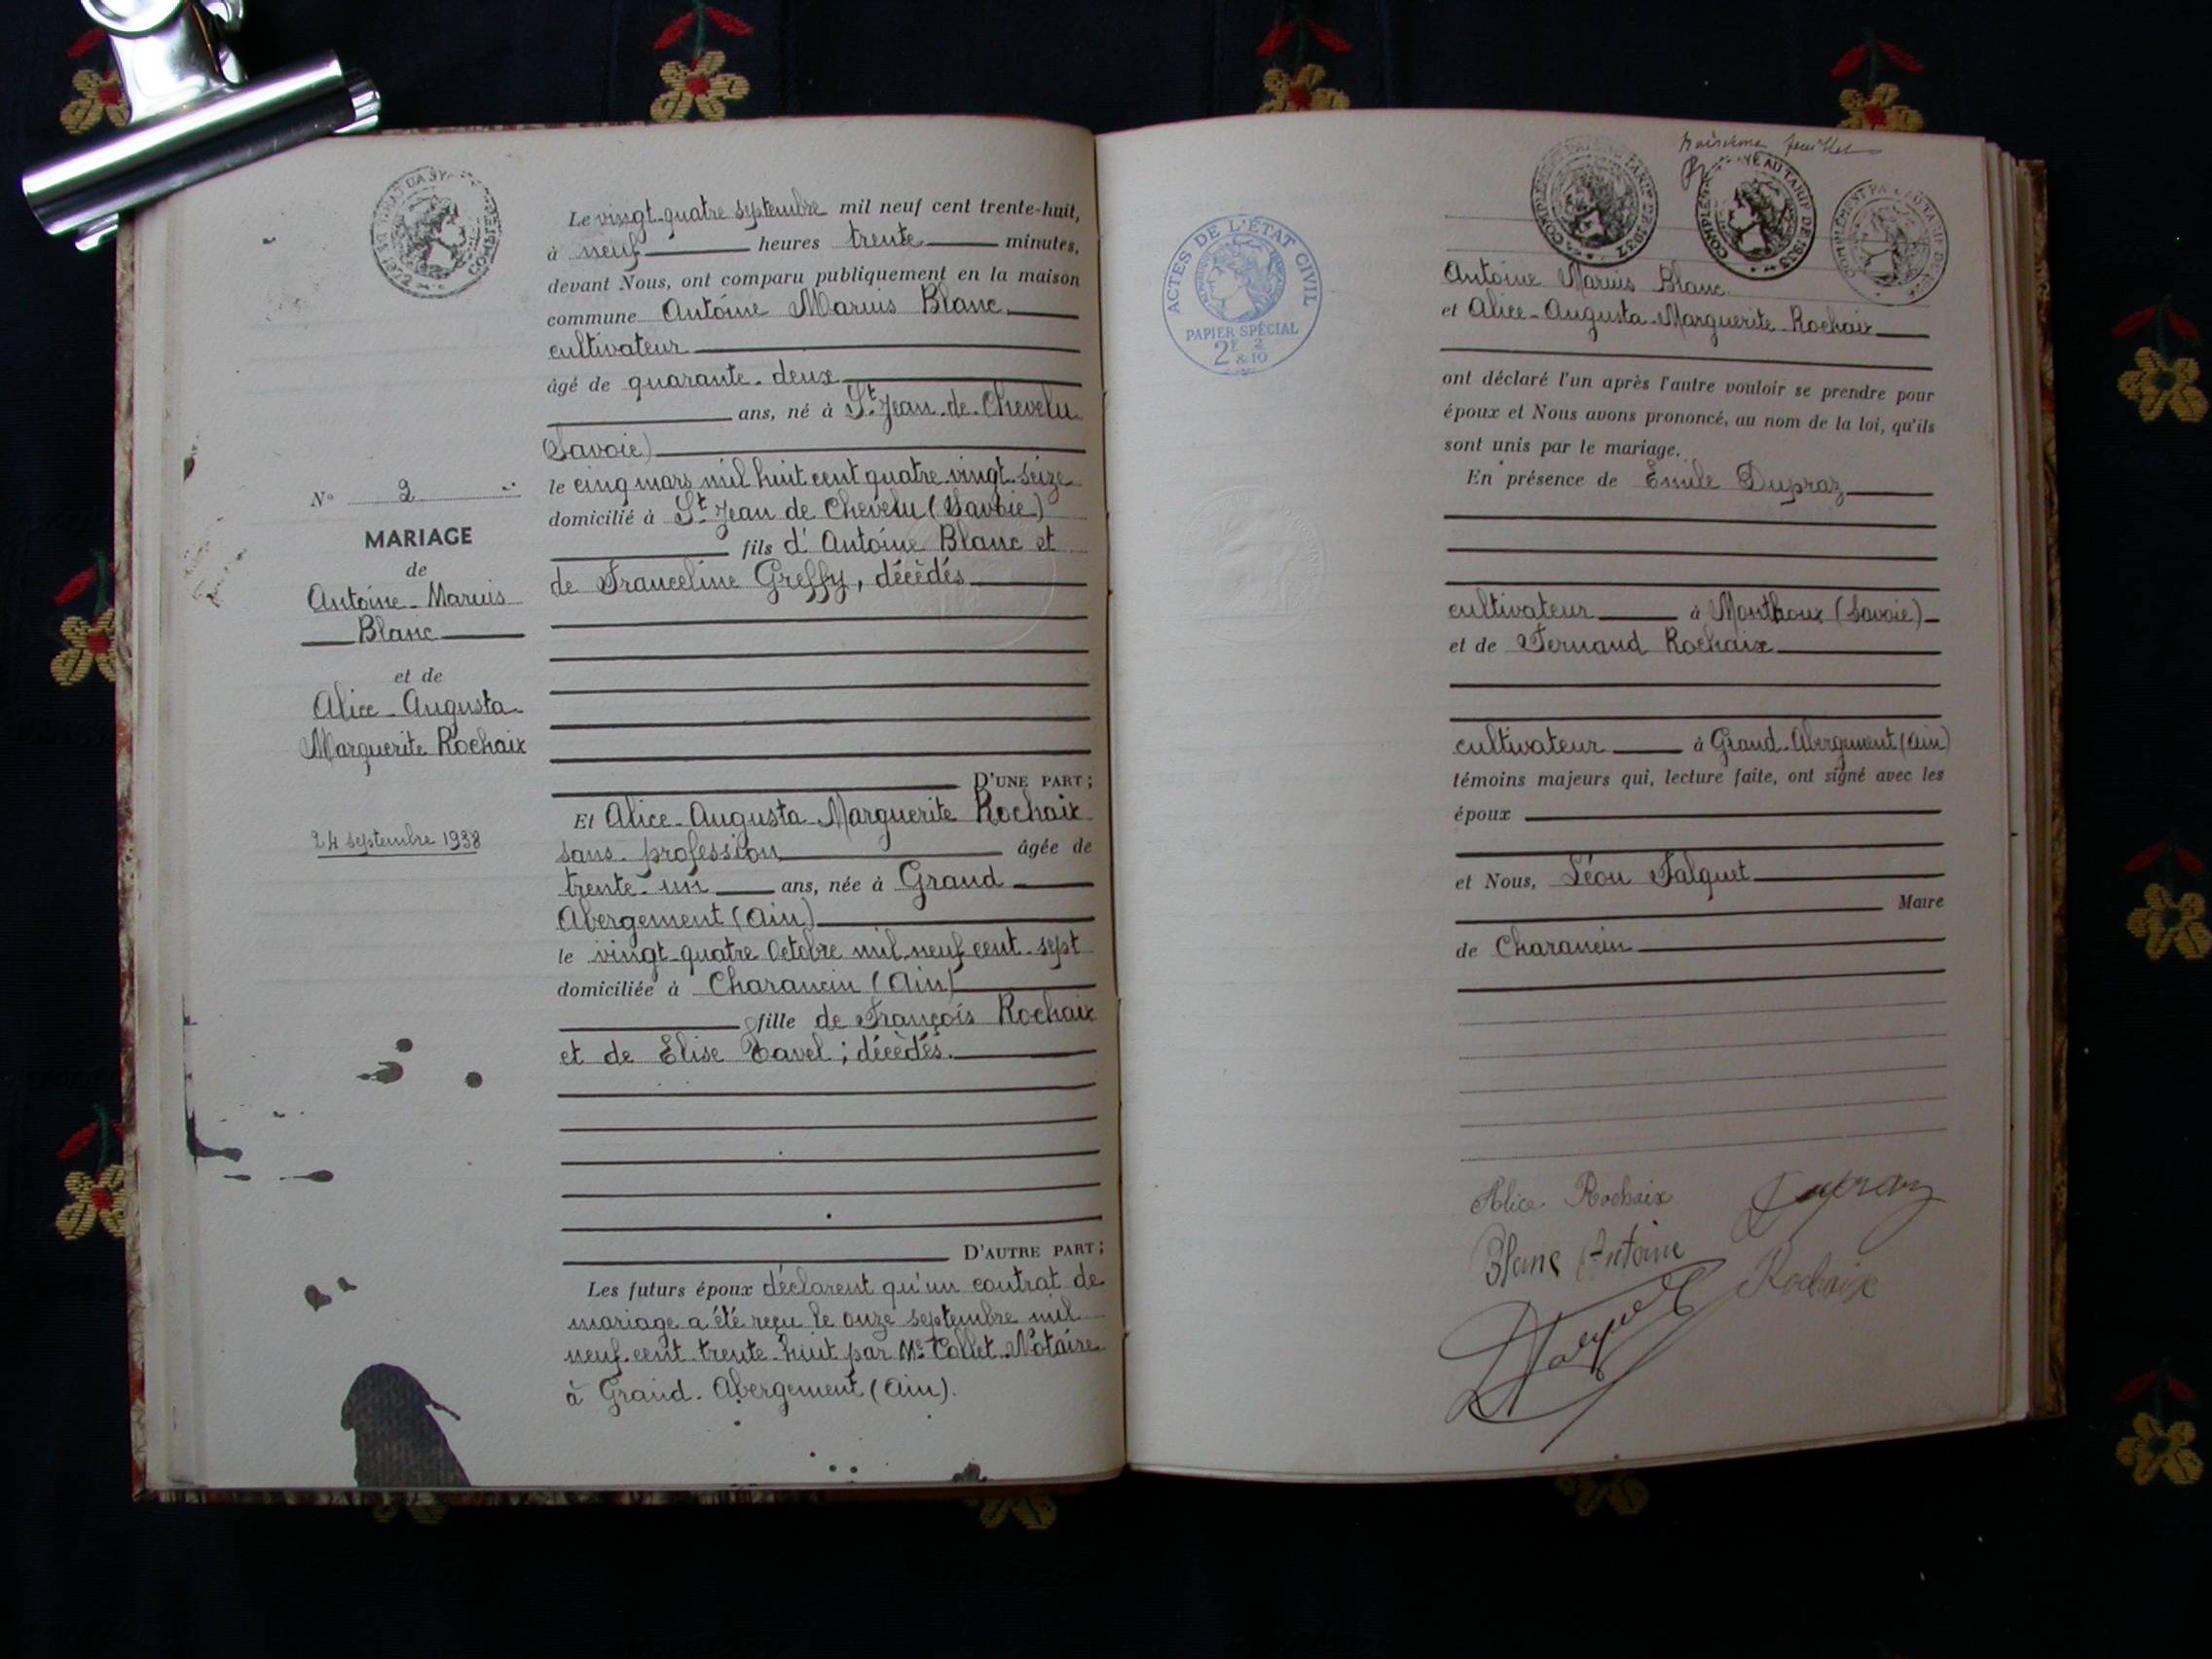 Le vingt-quatre septembre mil neuf cent trente-huit,
à neuf heures trente minutes,
devant Nous, ont comparu publiquement en la maison
commune Antoine Marius Blanc
cultivateur
âgé de quarante-deux
ans, né à St Jean-de-Chevelu
(Savoie)
le cinq mars mil huit cent quatre vingt-seize
domicilié à St Jean de Chevelu (Savoie)
fils d'Antoine Blanc et
de Franceline Greffy, décèdés
D'UNE PART ;
Et Alice-Augusta-Marguerite Rochaix
sans profession âgée de
trente-un ans, née à Grand
Abergement (Ain)
le vingt-quatre Octobre mil neuf cent-sept
domiciliée à Charancin (Ain)
fille de François Rochaix
et de Elise Tavel ; décèdés.
D'AUTRE PART ;
Les futurs époux déclarent qu'un contrat de
mariage a été reçu le onze septembre mil
neuf-cent-trente-huit par Me Collet Notaire
à Grand-Abergement (Ain).
N° 2
MARIAGE
de
Antoine-Marius
Blanc
et de
Alice-Augusta
Marguerite Rochaix
24 septembre 1938
troisième feuillet
ACTES DE L'ÉTAT CIVIL
PAPIER SPÉCIAL
2F 2
& 10
Antoine Marius Blanc
et Alice-Augusta-Marguerite-Rochaix
ont déclaré l'un après l'autre vouloir se prendre pour
époux et Nous avons prononcé, au nom de la loi, qu'ils
sont unis par le mariage.
En présence de Emile Dupraz
cultivateur à Monthoux (Savoie)
et de Fernand Rochaix
cultivateur à Grand-Abergement (Ain)
témoins majeurs qui, lecture faite, ont signé avec les
époux
et Nous, Léon Falquet
Maire
de Charancin
Alice Rochaix Dupraz
Blanc Antoine Rochaix